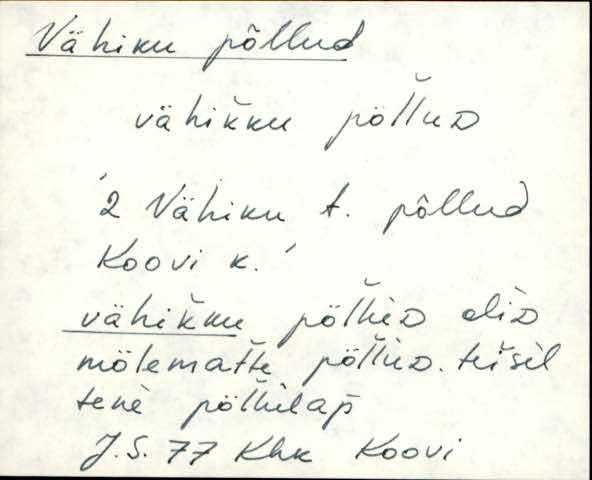 Vähiku põllud
vähikku põlluD
'2 Vähiku t. põllud
Koovi k.'
vähikku põlluD oliD
mõlematte põlluD. teisel
teine põllulap
J.S. 77 Khk Koovi